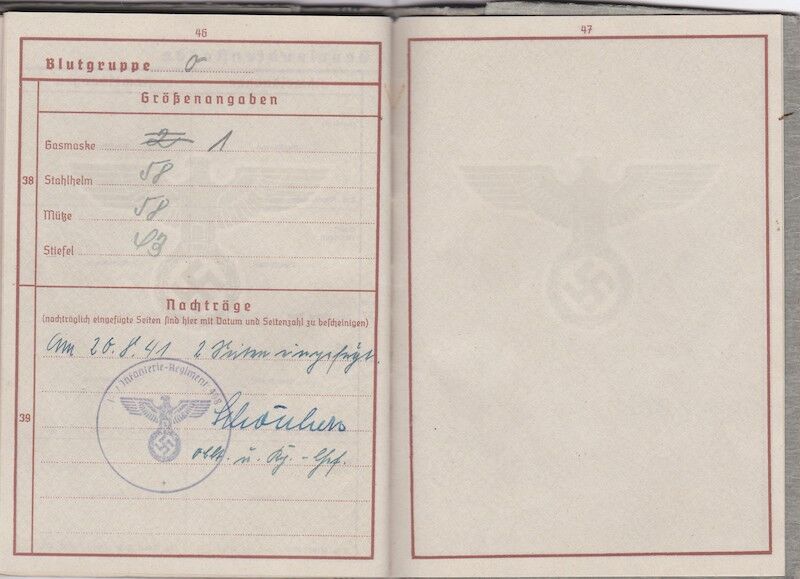 46
Blutgruppe 0
Größenangaben
38
Gasmaske 2 1
Stahlhelm 58
Mütze 58
Stiefel 43
Nachträge
(nachträglich eingefügte Seiten sind hier mit Datum und Seitenzahl zu bescheinigen)
Am 20.8.41 2 Seiten eingefügt.
Infanterie-Regiment
39
Oblt. u. Kp.-Chf.
47